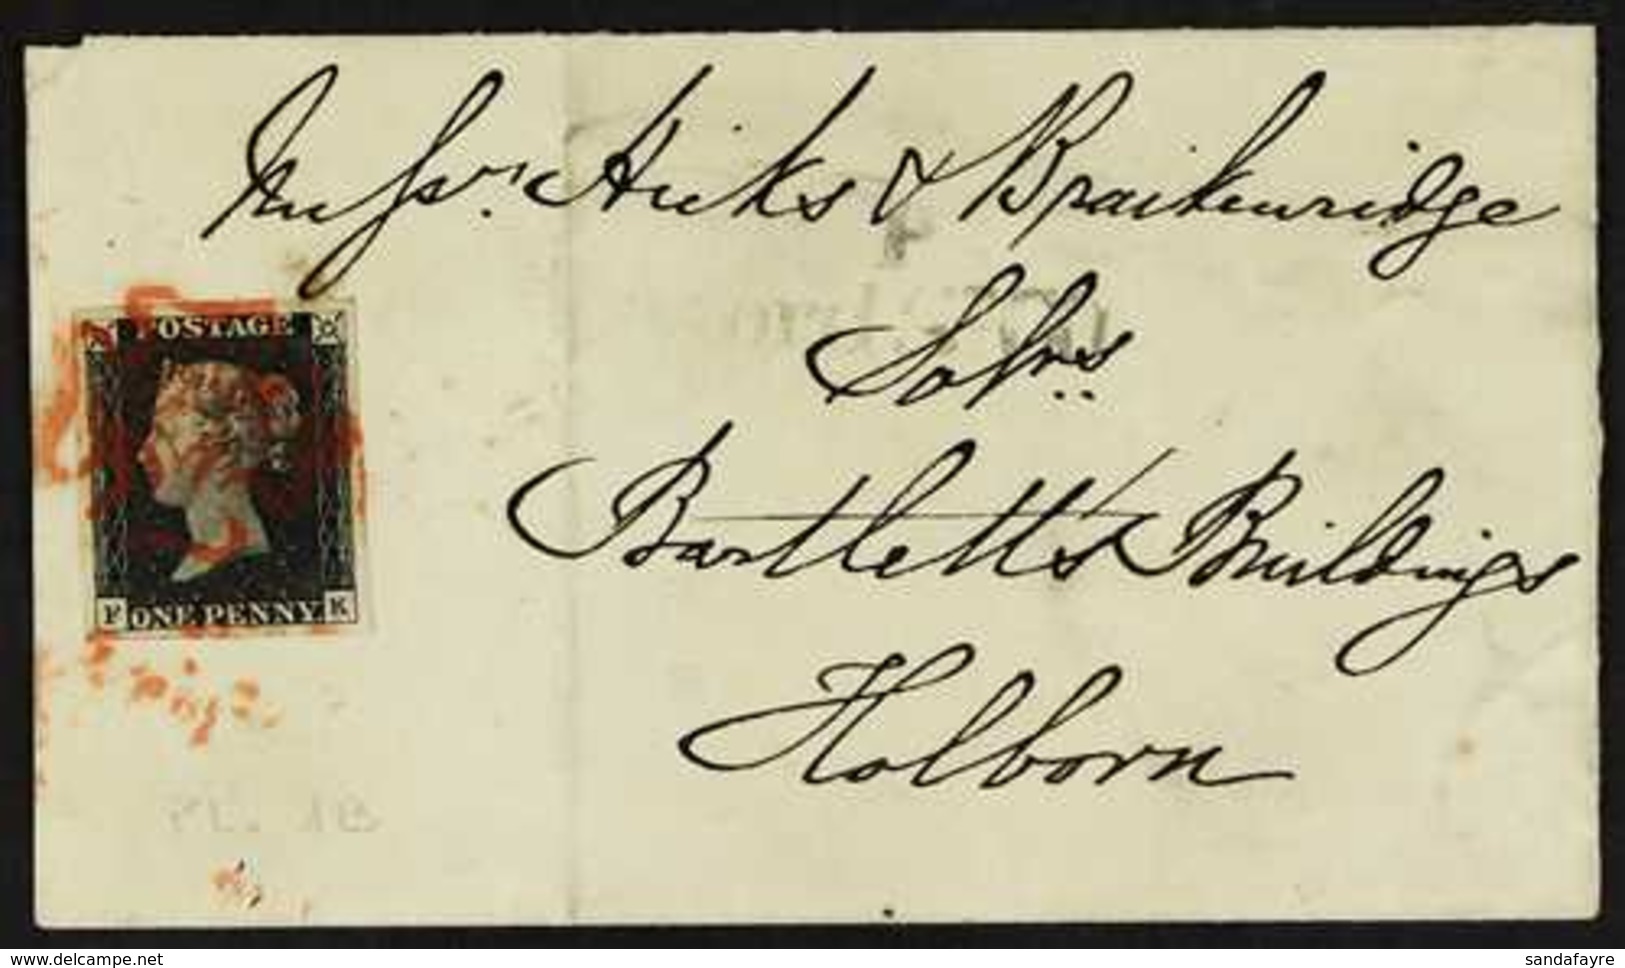 Messrs. Hicks & Braikenridge
Solrs
Bartlett's Buildings
Holborn
POSTAGE
F ONE PENNY K
PL. 1B
www.delcampe.net
sandafayre